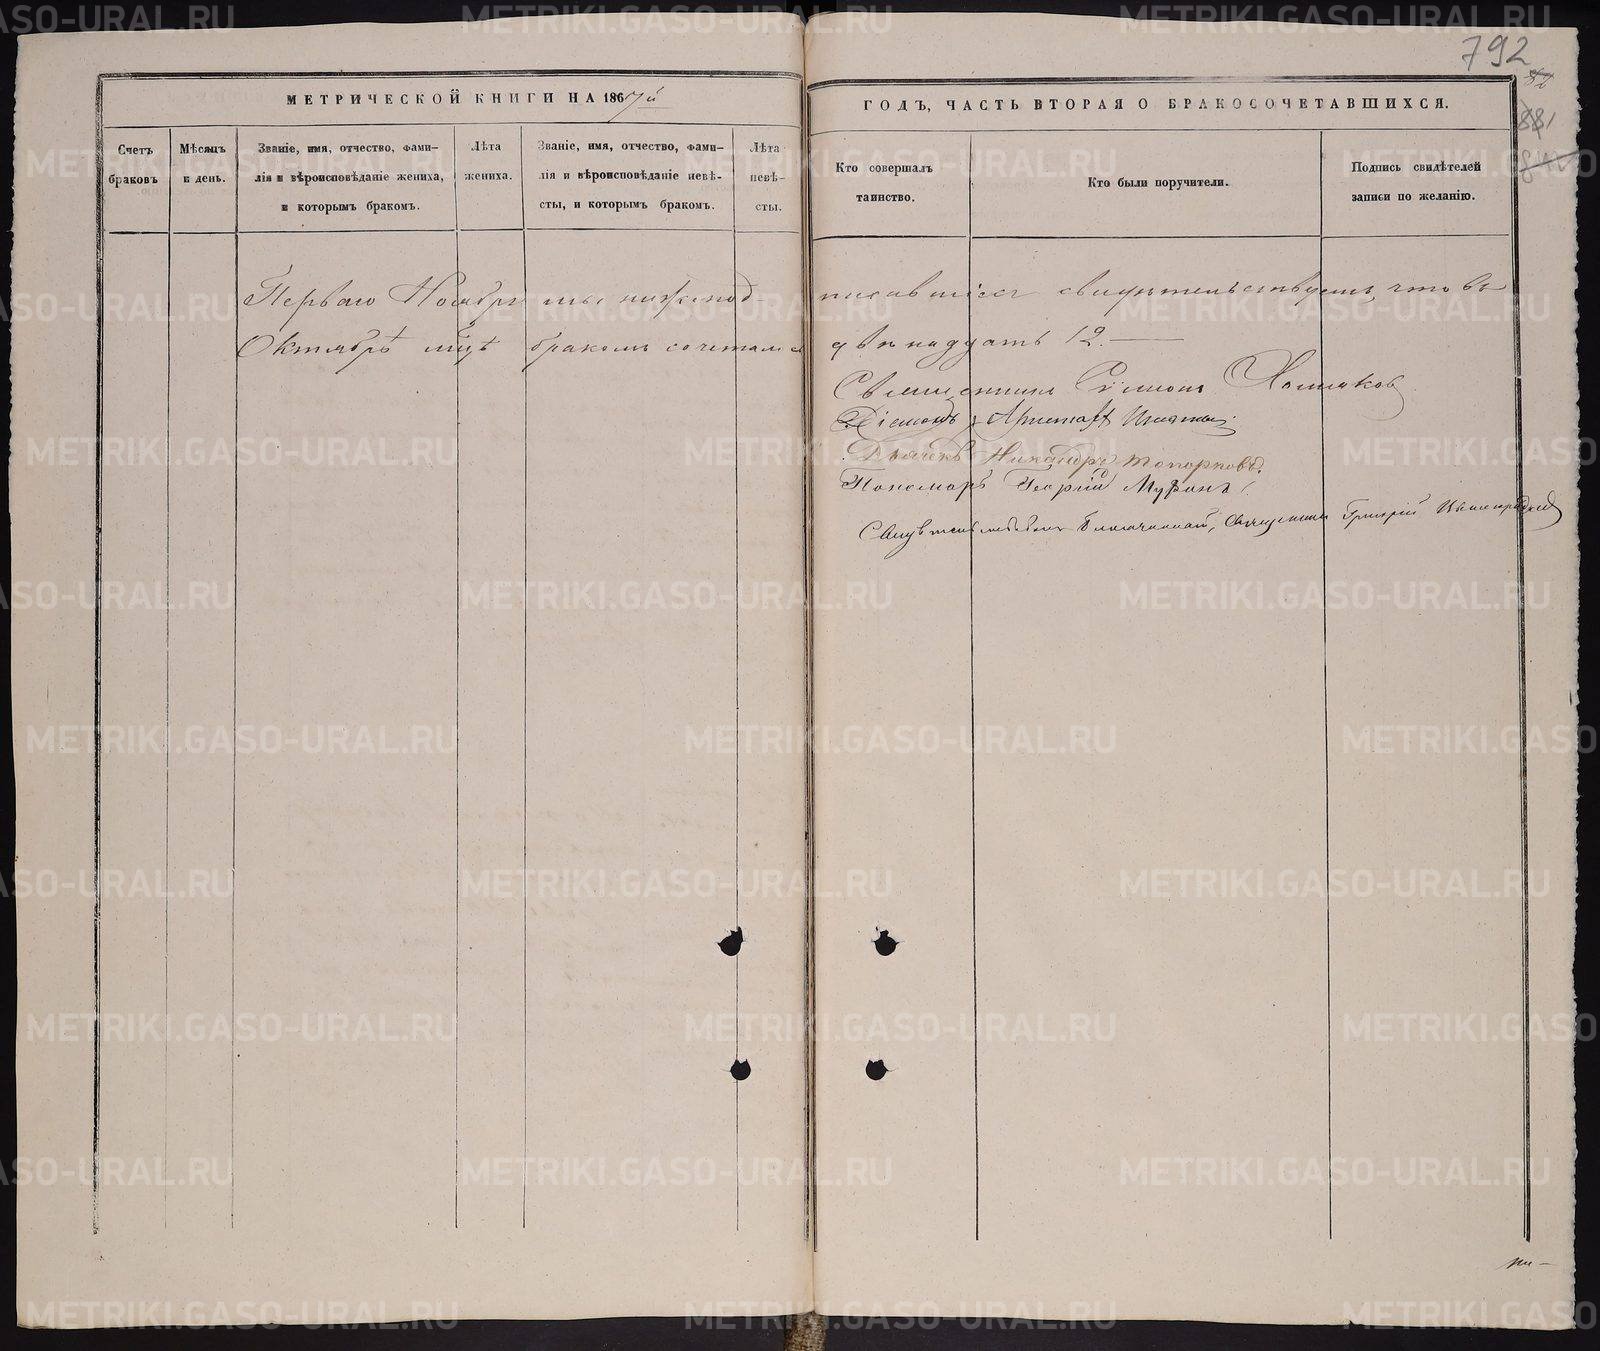 792
МЕТРИЧЕСКОЙ КНИГИ НА 1867й
ГОДЪ, ЧАСТЬ ВТОРАЯ О БРАКОСОЧЕТАВШИХСЯ.
881
Счетъ браковъ.
Мѣсяцъ и день.
Званіе, имя, отчество, фами-
лія и вѣроисповѣданіе жениха,
и которымъ бракомъ.
Лѣта жениха.
Званіе, имя, отчество, фами-
лія и вѣроисповѣданіе невѣ-
сты, и которымъ бракомъ.
Лѣта невѣ-
сты.
Кто совершалъ
таинство.
Кто были поручители.
Подпись свидѣтелей
записи по желанію.
Перваго Ноября мы нижепод-
писавшіеся свидѣтельствуемъ, что въ
Октябрѣ мцѣ бракомъ сочеталось
двенадцать 12.
Священникъ Симеонъ Хомяков
Діаконъ
Дьячекъ Никандръ Топорковъ.
Пономарь Георгій
Свидѣтельствовалъ Благочинный, Священникъ Григорій
METRIKI.GASO-URAL.RU